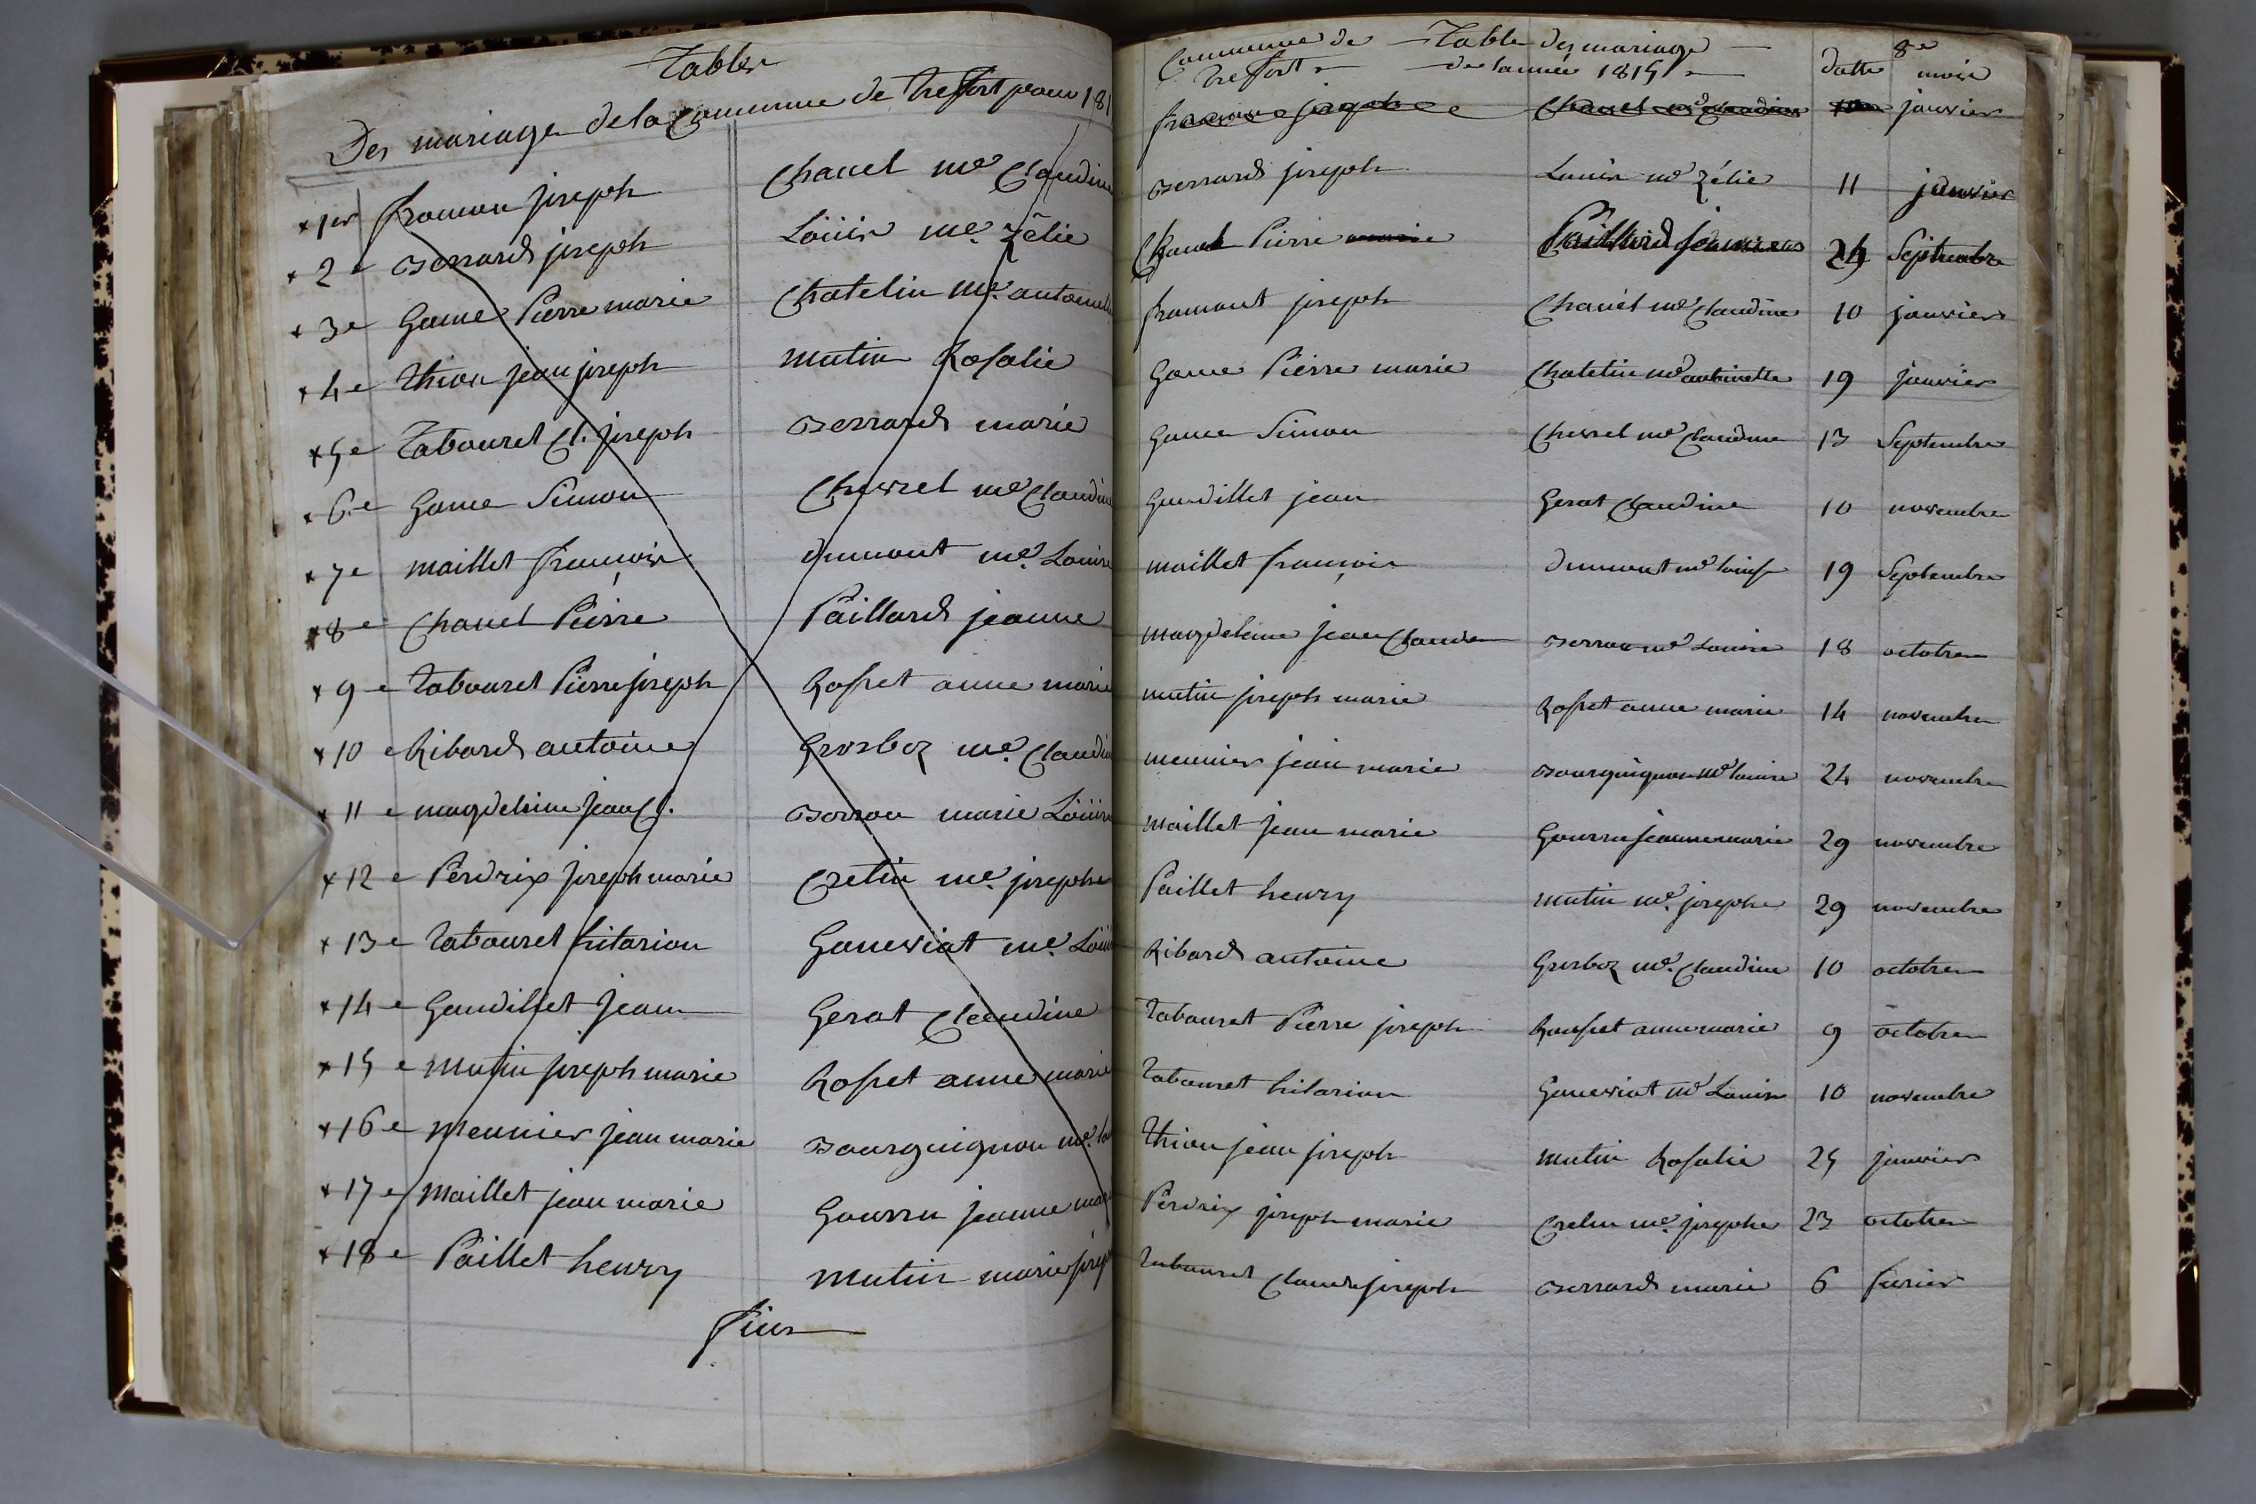 Table
Des mariage de la Commune de Treffort pour 181
x 1er fromon joseph Chanel me Claudine
x 2e Berrard joseph Löüise me Zélie
x 3e Game Pierre marie Chatelin me antoinette
x 4e Thion jean joseph mutin Rosalie
x 5e Tabouret Cl. joseph Berrard marie
x 6e Game Simon Chevrel me Claudine
x 7e maillet françois dumont me Louise
x 8e Chanel Pierre Paillard jeanne
x 9e Tabouret Pierre joseph Rosset anne marie
x 10e Ribard antoine Grosboz me Claudin
x 11e magdeleine jean Cl. Borron marie Löüise
x 12e Perdrix joseph marie Cretin me josephe
x 13e Tabouret hilarion Goneviat me Löüi
x 14e Gaudillet jean Gerat Claudine
x 15e mutin joseph marie Rosset anne marie
x 16e meunier jean marie Bourguignon me lou
x 17e maillet jean marie Gourru jeanne mar
x 18e Paillet henry mutin marie josep
fin
Commune de Treffort Table des mariage de lannée 1815 datte 8e mois
fromon joseph Chanel me Claudine 10 janvier
Berrard joseph Louise me Zélie 11 janvier
Chanel Pierre marie Paillard jeanne 24 Septembre
fromont joseph Chanel me Claudine 10 janvier
Game Pierre marie Chatelin me antoinette 19 janvier
Game Simon Chevrel me Claudine 13 Septembre
Gaudillet jean Gerat Claudine 10 novembre
maillet françois dumont me louise 19 Septembre
magdeleine jean Claude Borron me Louise 18 octobre
mutin joseph marie Rosset anne marie 14 novembre
meunier jean marie Bourguignon me louise 24 novembre
maillet jean marie Gourru jeanne marie 29 novembre
Paillet henry mutin me josephe 29 novembre
Ribard antoine Grosboz me Claudine 10 octobre
Tabouret Pierre joseph Rousset anne marie 9 octobre
Tabouret hilarion Goneviat me Louise 10 novembre
Thion jean joseph mutin Rosalie 25 janvier
Perdrix joseph marie Cretin me josephe 23 octobre
Tabouret Claude joseph Berrard marie 6 fevrier